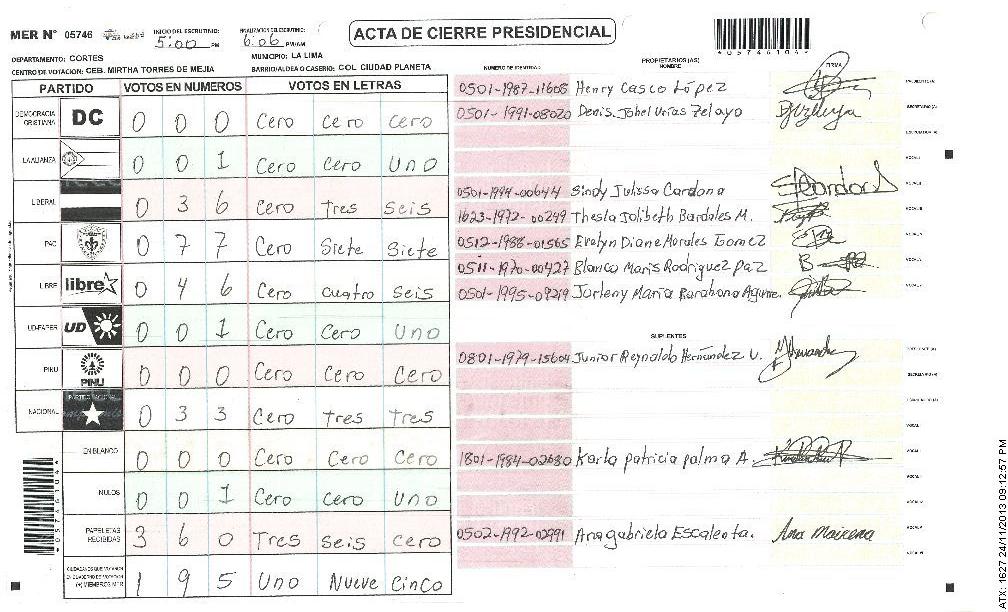 MER N° 05746
INICIO DEL ESCRUTINIO: 5:00 PM
FINALIZACION DEL ESCRUTINIO: 6:06 PM/AM
ACTA DE CIERRE PRESIDENCIAL
*05746104*
DEPARTAMENTO: CORTES
MUNICIPIO: LA LIMA
CENTRO DE VOTACION: CEB. MIRTHA TORRES DE MEJIA
BARRIO/ALDEA O CASERIO: COL CIUDAD PLANETA
PARTIDO VOTOS EN NUMEROS VOTOS EN LETRAS
DEMOCRACIA CRISTIANA DC 0 0 0 Cero cero cero
LA ALIANZA 0 0 1 Cero Cero Uno
LIBERAL 0 3 6 Cero tres Seis
PAC 0 7 7 Cero Siete Siete
LIBRE libre 0 4 6 Cero cuatro seis
UD-FAPER UD 0 0 1 Cero Cero Uno
PINU PINU 0 0 0 Cero Cero Cero
NACIONAL 0 3 3 Cero tres tres
EN BLANCO 0 0 0 Cero Cero Cero
NULOS 0 0 1 Cero cero uno
PAPELETAS RECIBIDAS 3 6 0 Tres seis cero
CIUDADANOS QUE VOTARON EN CUADERNO DE VOTACION (+) MIEMBROS MER 1 9 5 Uno Nueve Cinco
NUMERO DE IDENTIDAD PROPIETARIOS (AS) NOMBRE FIRMA
0501-1987-11608 Henry Casco López
0501-1991-08020 Denis Jobel Urias Zelayo
0501-1994-00644 Sindy Julissa Cardona
1623-1972-00249 Thesla Jolibeth Bardales M.
0512-1988-01565 Evelyn Diane Morales Gomez
0511-1970-00427 Blanca Maris Rodriguez Paz
0501-1995-09219 Jurleny María Barahona Aguirre
SUPLENTES
0801-1979-15604 Junior Reynaldo Hernández V.
1801-1984-02680 Karla patricia palma A
0502-1992-02991 Ana gabriela Escalanta. Ana Mairena
ATX: 1627 24/11/2013 09:12:57 PM